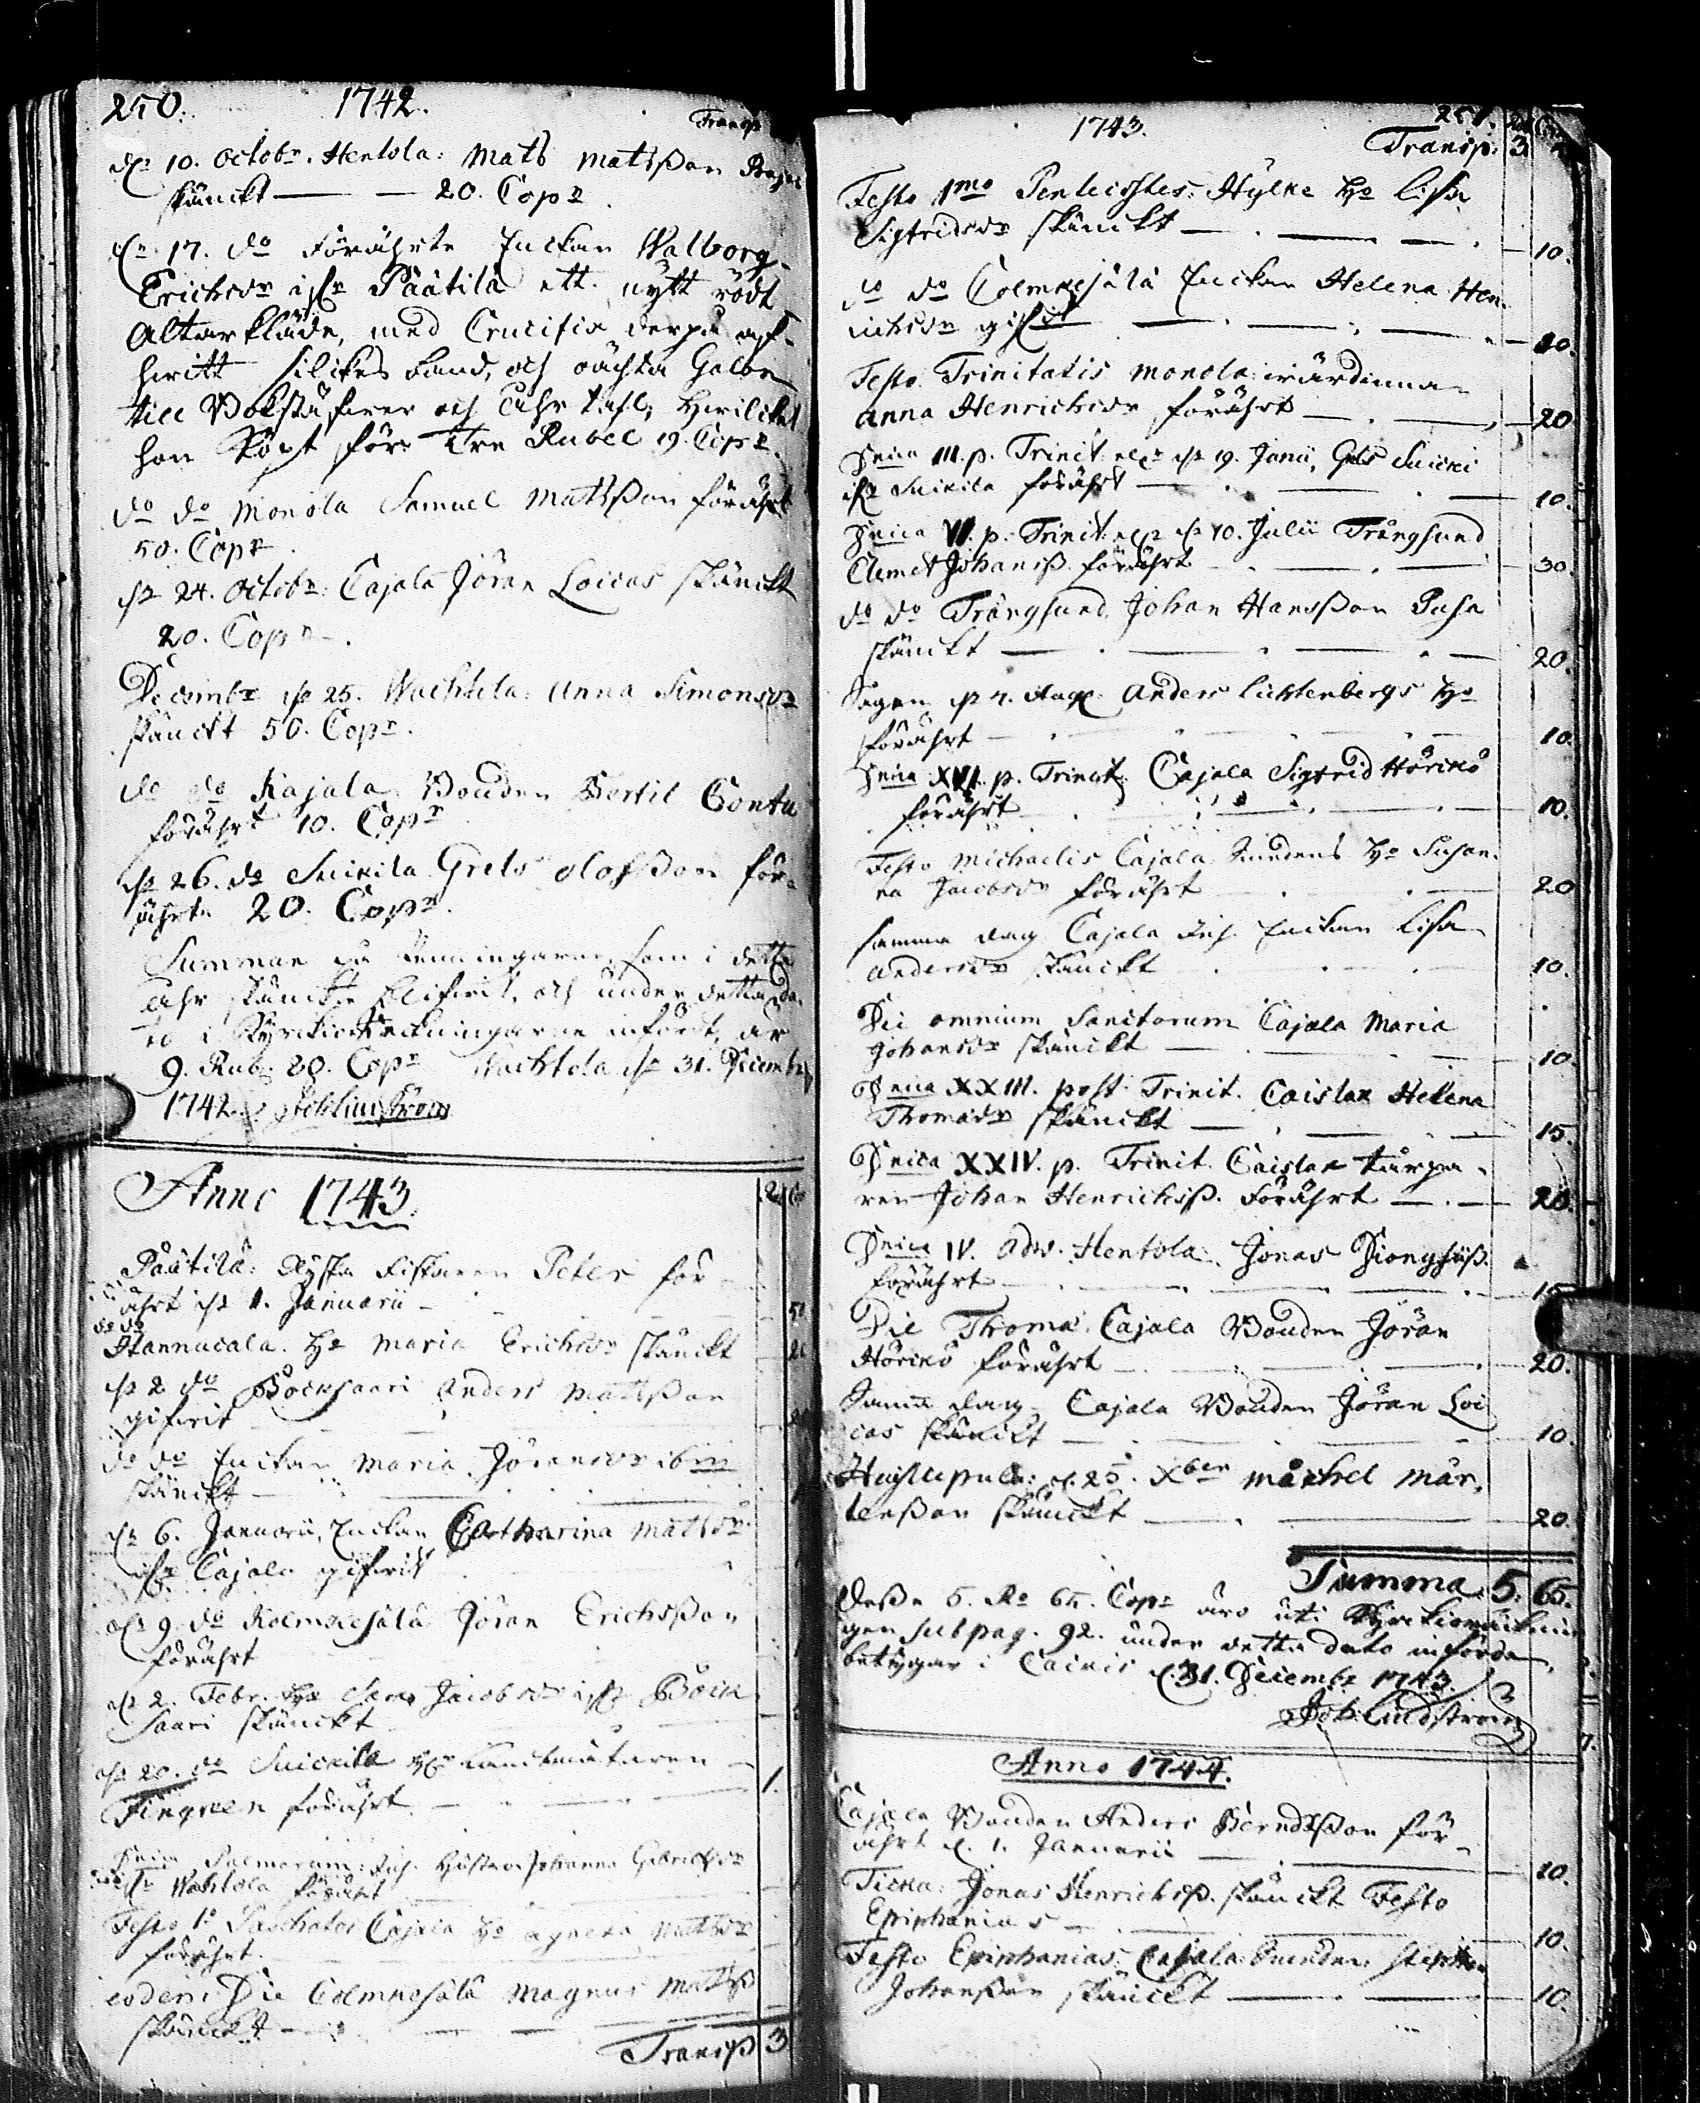 250. 1742.
Transp
d. 10. Octobr. Hentola: Mats Matsßon
skänckt — — 20. Copr.
d. 17. do Förährte Enckan Walborg
Erichsdr ifr Päätilä ett nytt rödt
Altarkläde, med Crucifix derpå af
hwitt silikes band, och oächta Galon
till Bokstäfwer och Åhr tahl, hwilcket
hon köpt för Tre Rubel 19. Copr.
do do Monola Samuel Matsßon förährt
50. Copr.
d. 24. Octobr: Cajala Jöran Loicas skänckt
20. Copr.
Decembr d. 25. Wachtila: Anna Simonsdr
skänckt 50. Copr.
do do Kajala Bonden Bertil Contu
förährt 10. Copr
d. 26. do Suikila Grels Olofsson för-
ährte 20. Copr.
Summan på penningarne, som i dette
åhr skänckte blifwit, och under detta da-
to i Kyrkioräckningarne infördt, är
9. Rub. 20. Copr Wachtola d. 31. Decembr
1742.
Anno 1743.
Päätilä: Ryska Fiskaren Peter för-
ährt d. 1. Januarii — 50
do do
Hannucala. Ho Maria Erichsdr skänckt — 20
d. 2 do Böcksaari Anders Mattsßon
gifwit
do do Enckan Maria Jöransdr ibm
skänckt —
d. 6. Januarii, Enckan Catharina Matsdr
ifr Cajala gifwit
d. 9. do Kolmkesälä Jöran Erichsßon
förährt
d. 2. Febr. Ho Jacobsdr ifr Böck
saari skänckt
d. 20. do Suickila Hr Landtmätaren
Tingreen förährt — 1.
Dnica Palmarum: Hustru Johanna Gabrielsdr
ifr Wachtola förährt
Festo 1o Paschatos Cajala Ho Agneta Matsdr
förährt.
eodem Die Colmkesälä Magnus Matsß
skänckt —
Transp 3
1743. 251.
Transp: 3
Festo 1mo Pentecostes: Hylke Ho Lisa
Sigfridsdr skänckt — 10.
do do Colmkesälä Enckan Helena Hen-
richsdr gifwit — 20.
Festo Trinitatis Monola: wärdinna
Anna Henrichsdr förährt — 20
Dnica III. p. Trinit: d. 19. Junii, Grels Suicki
ifr Suikila förährt — 10.
Dnica VI. p. Trinit: d. 10. Julii Trångsund
Clemet Johanß. förährt — 30.
do do Trångsund Johan Hansßon Pusa
skänckt — 20.
d. 4. Aug. Anders Lichtenbergs Ho
förährt — 10.
Dnica XVI. p. Trinit: Cajala Sigfrid Hörckö
förährt — 10.
Festo Michaelis Cajala Ho Susan-
na Jacobsdr förährt — 20
Samma dag Cajala Enckan Lisa
Andersdr skänckt — 10.
Die omnium Sanctorum Cajala Maria
Johansdr skänckt — 10.
Dnica XXIII. post Trinit. Caislax Helena
Thomasdr skänckt — 15.
Dnica XXIV. p. Trinit. Caislax
Johan Henrichsß. Förährt — 20.
Dnica IV. Adv. Hentola: Jonas
förährt — 15
Die Thomæ Cajala Bonden Jöran
Hörckö förährt — 20.
Samma dag Cajala Bonden Jöran Loi
cas skänckt — 10.
d. 25. Xber Måchel Mår-
tensßon skänckt — 20.
Summa 5. 65.
Desse 5. Ro 65. Copr äro uti Kyrkioräcknin
gen sub pag. 92. under detta dato införde,
betygar i Cainis d. 31. Decembr 1743.
Joh: Lindström
Anno 1744.
Cajala Bonden Anders Berndtsßon för-
ährt d. 1. Januarii — 10.
Ticka: Jonas Henrichsß. skänckt Festo
Epiphanias — 10.
Festo Epiphanias: Cajala: Stephan
Johansßon skänckt — 10.